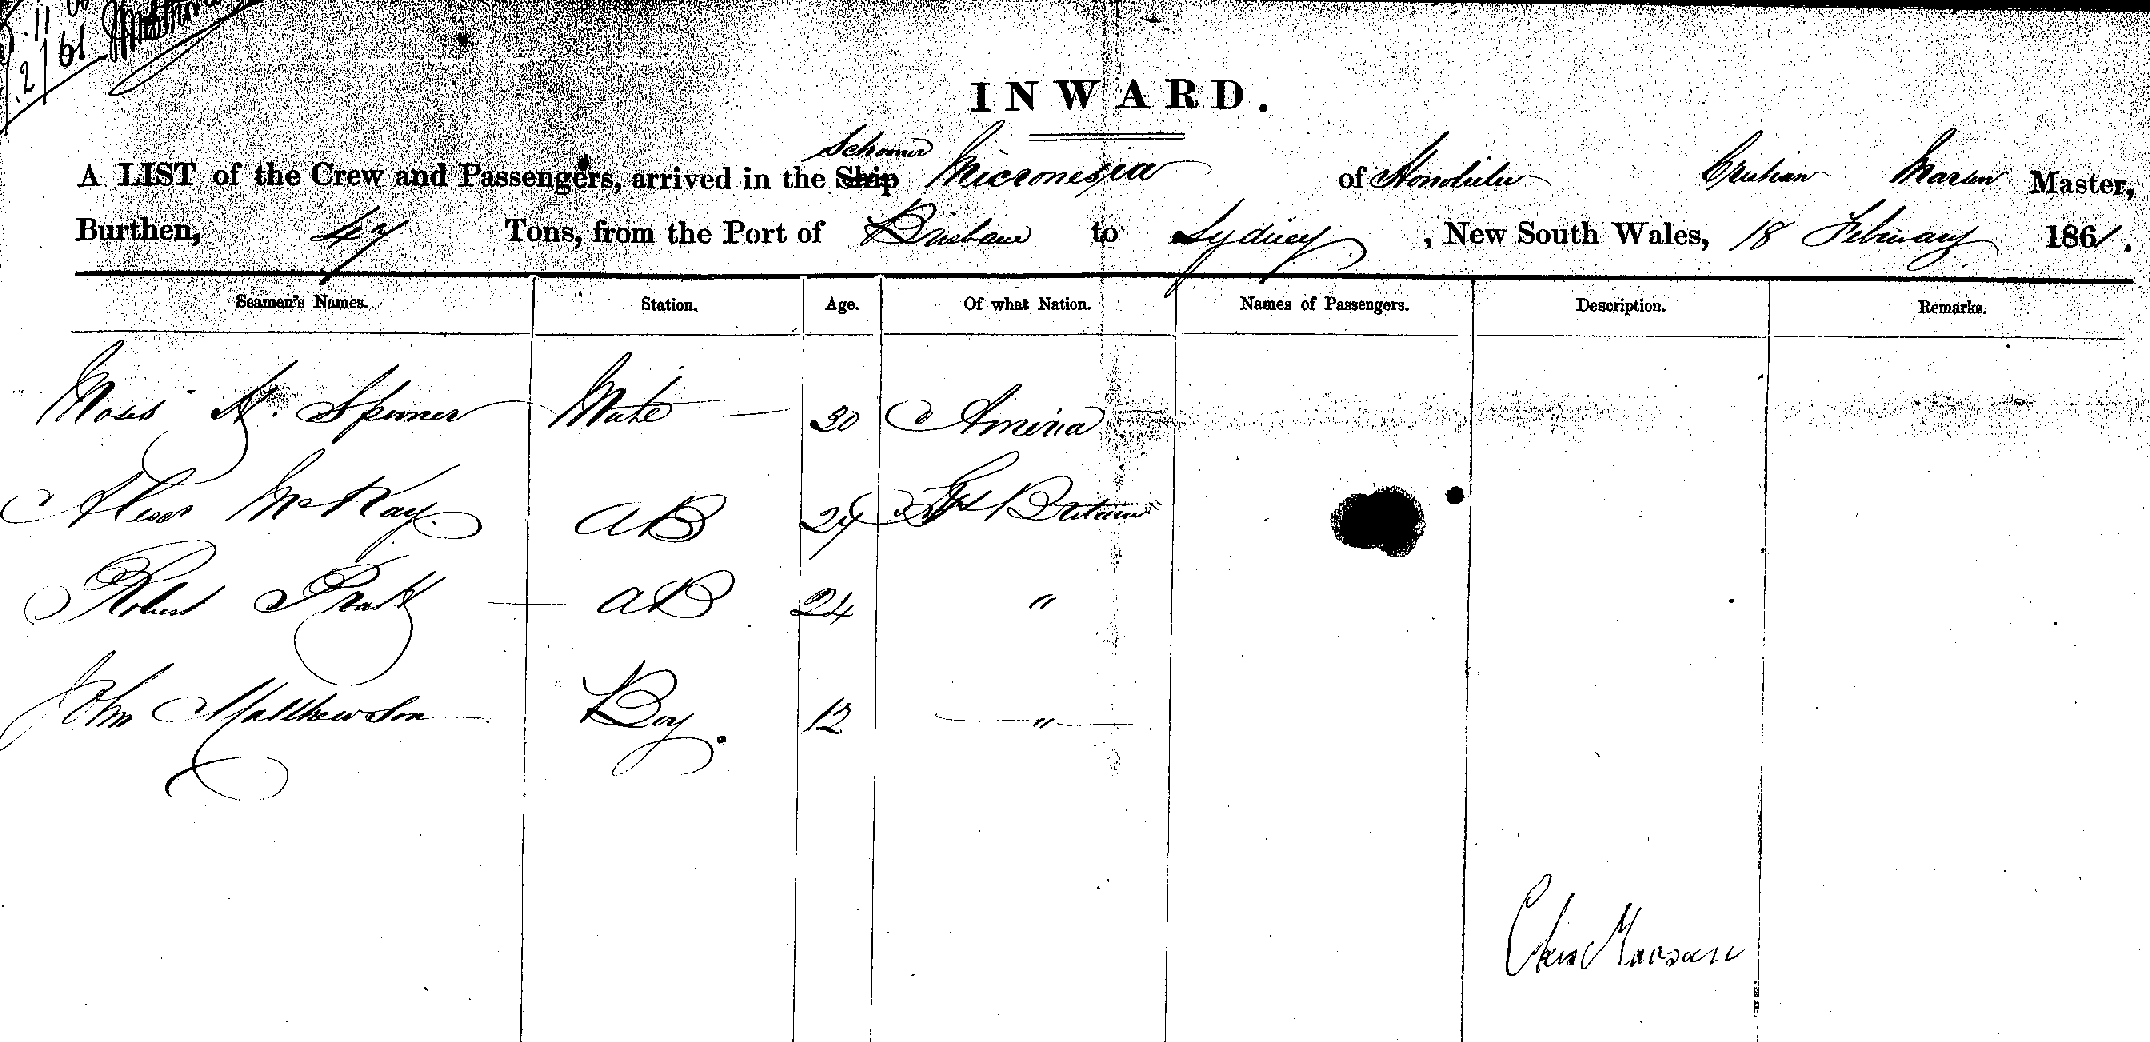 11
2/61
INWARD.
Schooner
A LIST of the Crew and Passengers, arrived in the Ship Micronesia of Honolulu Cristian Marsen Master,
Burthen, 47 Tons, from the Port of Brisbane to Sydney, New South Wales, 18 February 1861.
Seamen's Names. Station. Age. Of what Nation. Names of Passengers. Description. Remarks.
Moses H. Spooner Mate 30 America
Alexr McKay AB 24 Gt Britain
Robert Pratt AB 24 "
John Matthewson Boy. 12 "
Chris Marsen